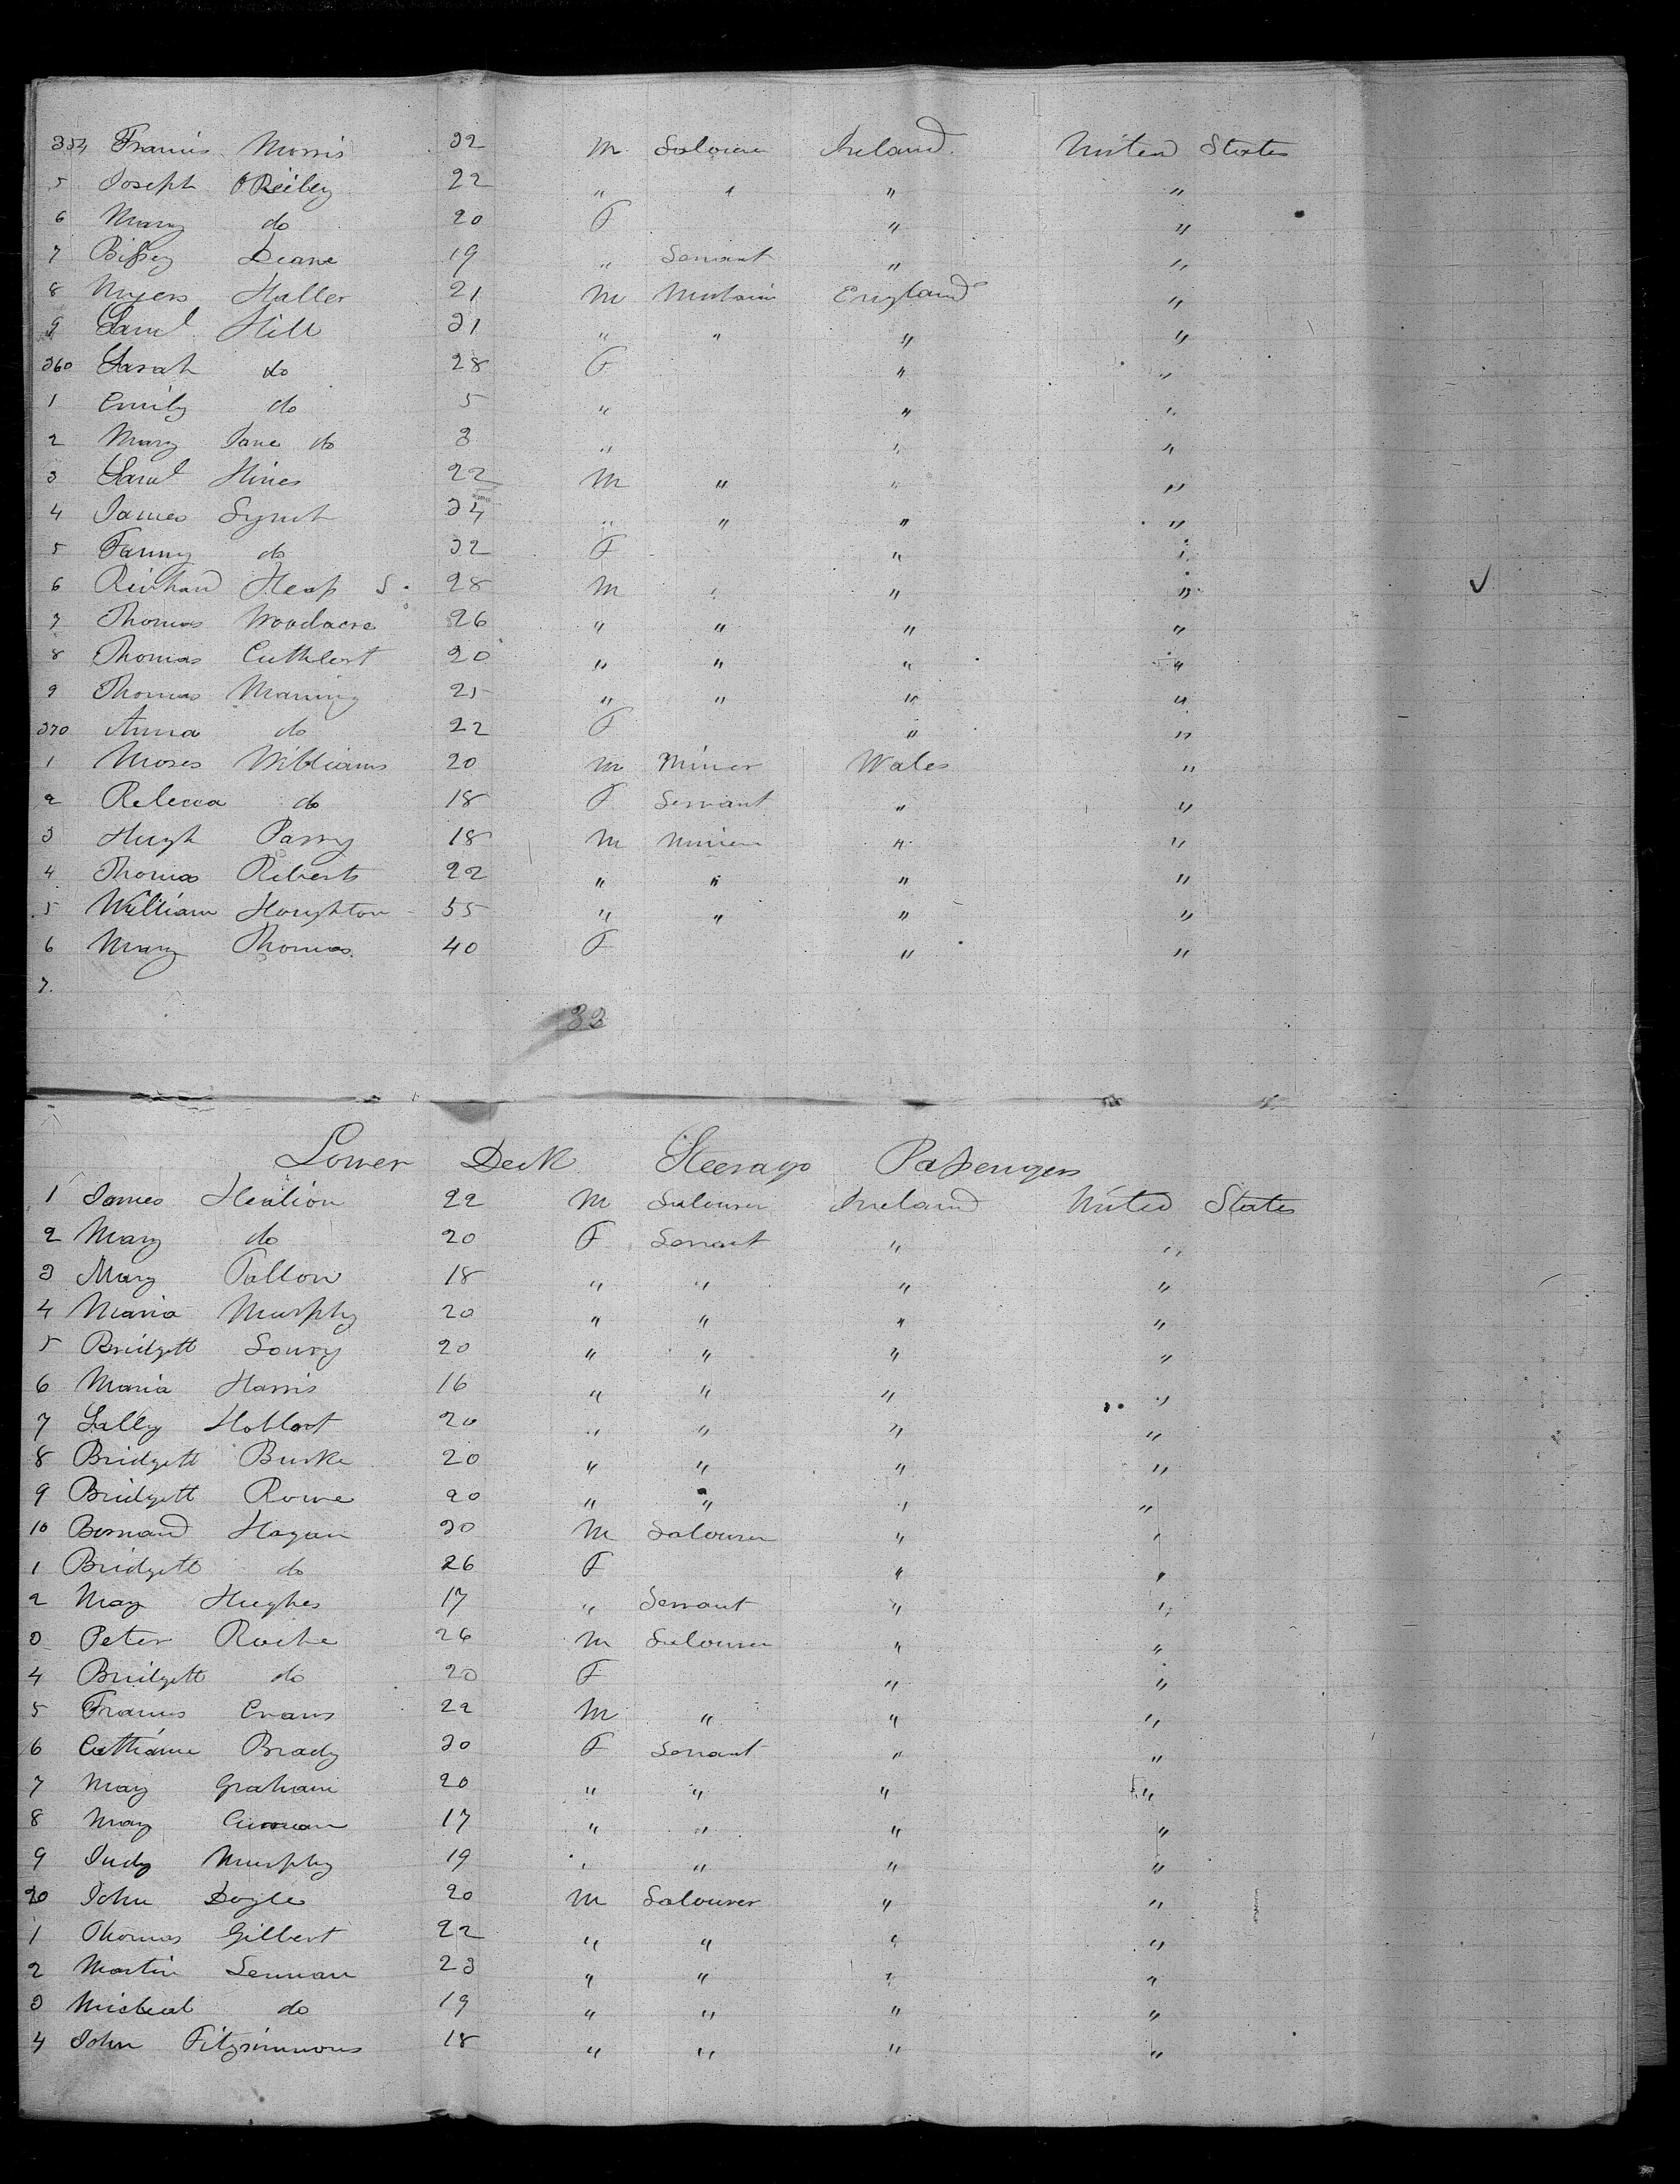 354 Francis Morris 32 M Labourer Ireland United States
5 Joseph O'Reiley 22 " " " "
6 Mary do 20 F " "
7 Bissey Deane 19 " Servant " "
8 Myers Haller 21 M England "
9 Saml Hill 31 " " " "
360 Sarah do 28 F " "
1 Emily do 5 " " "
2 Mary Jane do 3 " " "
3 Saml Hines 22 M " " "
4 James Lynch 34 " " " "
5 Fanny do 32 F " "
6 Richard Heap S. 28 M " " "
7 Thomas Woodacre 26 " " " "
8 Thomas Cuthbert 20 " " " "
9 Thomas Maning 25 " " " "
370 Anna do 22 F " "
1 Moses Williams 20 M Miner Wales "
2 Rebecca do 18 F Servant " "
3 Hugh Parry 18 M Miner " "
4 Thomas Roberts 22 " " " "
5 William Houghton 55 " " " "
6 Mary Thomas 40 F " "
7.
33
Lower Deck Steerage Passengers
1 James 22 M Labourer Ireland United States
2 Mary do 20 F Servant " "
3 Mary Fallon 18 " " " "
4 Maria Murphy 20 " " " "
5 Bridgett Lowry 20 " " " "
6 Maria Harris 16 " " " "
7 Sally Hobbart 20 " " " "
8 Bridgett Burke 20 " " " "
9 Bridgett Rowe 20 " " " "
10 Bernard Hagan 30 M Labourer " "
1 Bridgett do 26 F " "
2 May Hughes 17 " Servant " "
3 Peter Roche 26 M Labourer " "
4 Bridgett do 20 F " "
5 Francis Evans 22 M " " "
6 Catharine Brady 30 F Servant " "
7 May Graham 20 " " " "
8 May Curran 17 " " " "
9 Judy Murphy 19 " " " "
20 John Doyle 20 M Labourer " "
1 Thomas Gilbert 22 " " " "
2 Martin Lennan 23 " " " "
3 Micheal do 19 " " " "
4 John Fitzsimmons 18 " " " "